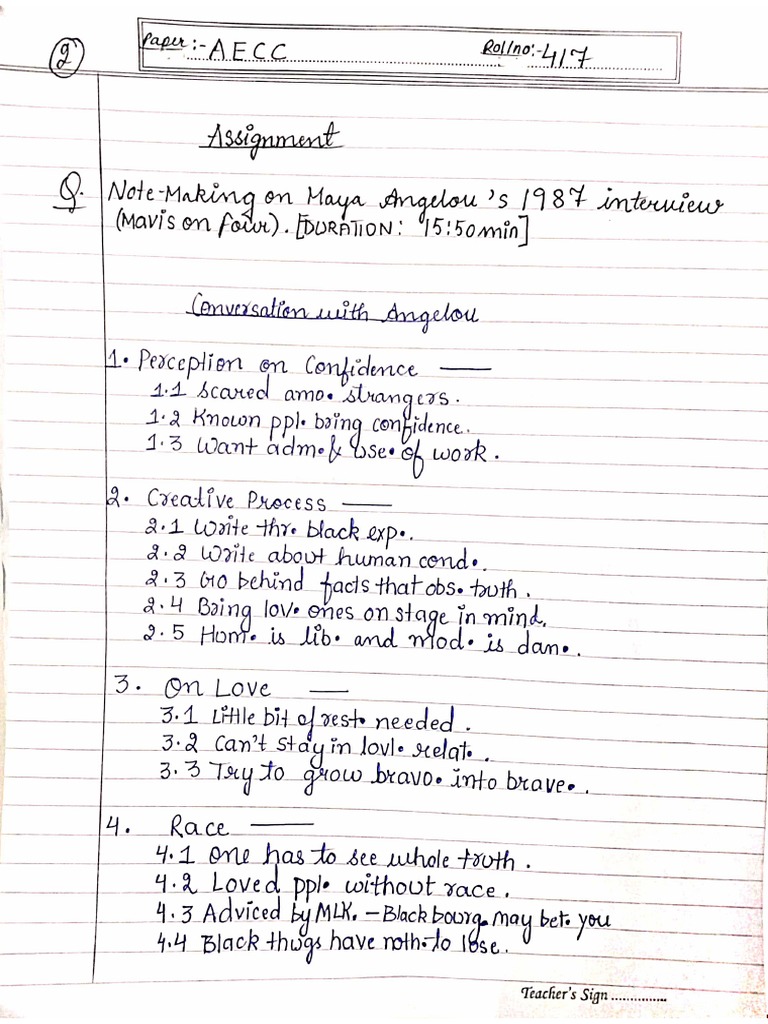 2
Paper:- AECC Roll/no:- 417
Assignment
Q. Note-Making on Maya Angelou's 1987 interview
(Mavis on four). [DURATION: 15:50min]
Conversation with Angelou
1. Perception on Confidence —
1.1 Scared amo. strangers.
1.2 Known ppl. bring confidence.
1.3 Want adm. & use. of work.
2. Creative Process —
2.1 Write thr. black exp..
2.2 Write about human cond..
2.3 Go behind facts that obs. truth.
2.4 Bring lov. ones on stage in mind.
2.5 Hum. is lib. and mod. is dan..
3. On Love —
3.1 Little bit of rest. needed.
3.2 Can't stay in lovl. relat..
3.3 Try to grow bravo. into brave..
4. Race —
4.1 One has to see whole truth.
4.2 Loved ppl. without race.
4.3 Adviced by MLK. - Black bourg. may bet. you
4.4 Black thugs have noth. to lose.
Teacher's Sign ..............